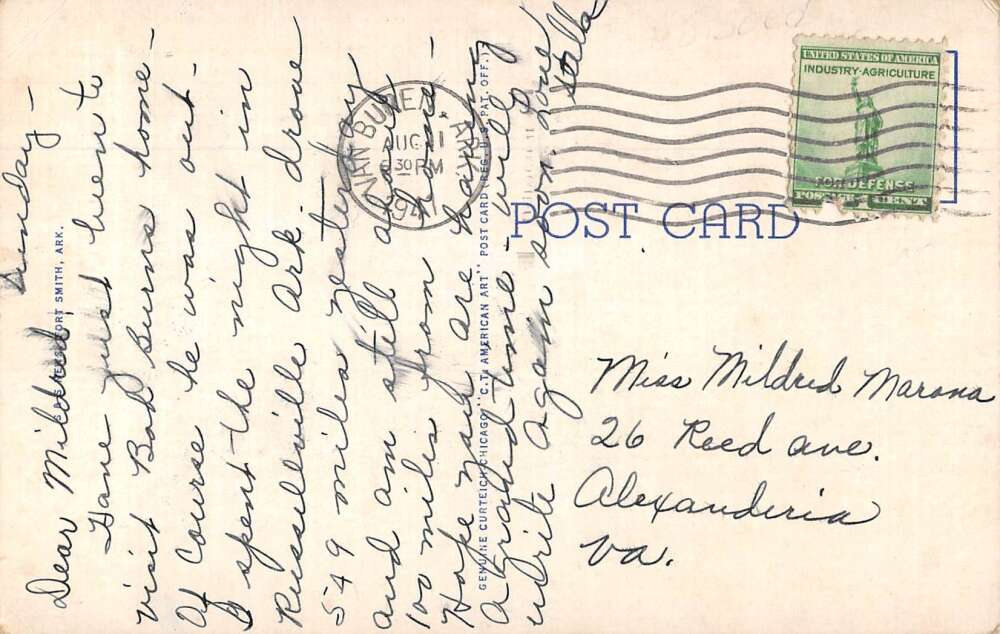 Sunday -
Dear Mildred,
Have just been to
visit Bob Burns home -
Of course he was out -
I spent the night in
Russellville Ark. drove
549 miles yesterday
and am still about
100 miles from home -
Hope you are having
a grand time - will
write again soon. Love
Stella
FORT SMITH, ARK.
GENUINE CURTEICH-CHICAGO "C.T. AMERICAN ART" POST CARD (REG. U.S. PAT. OFF.)
VAN BUREN
ARK.
AUG 11
6 30 PM
194
UNITED STATES OF AMERICA
INDUSTRY-AGRICULTURE
FOR DEFENSE
POST CARD
Miss Mildred Marona
26 Reed ave.
Alexanderia
Va.